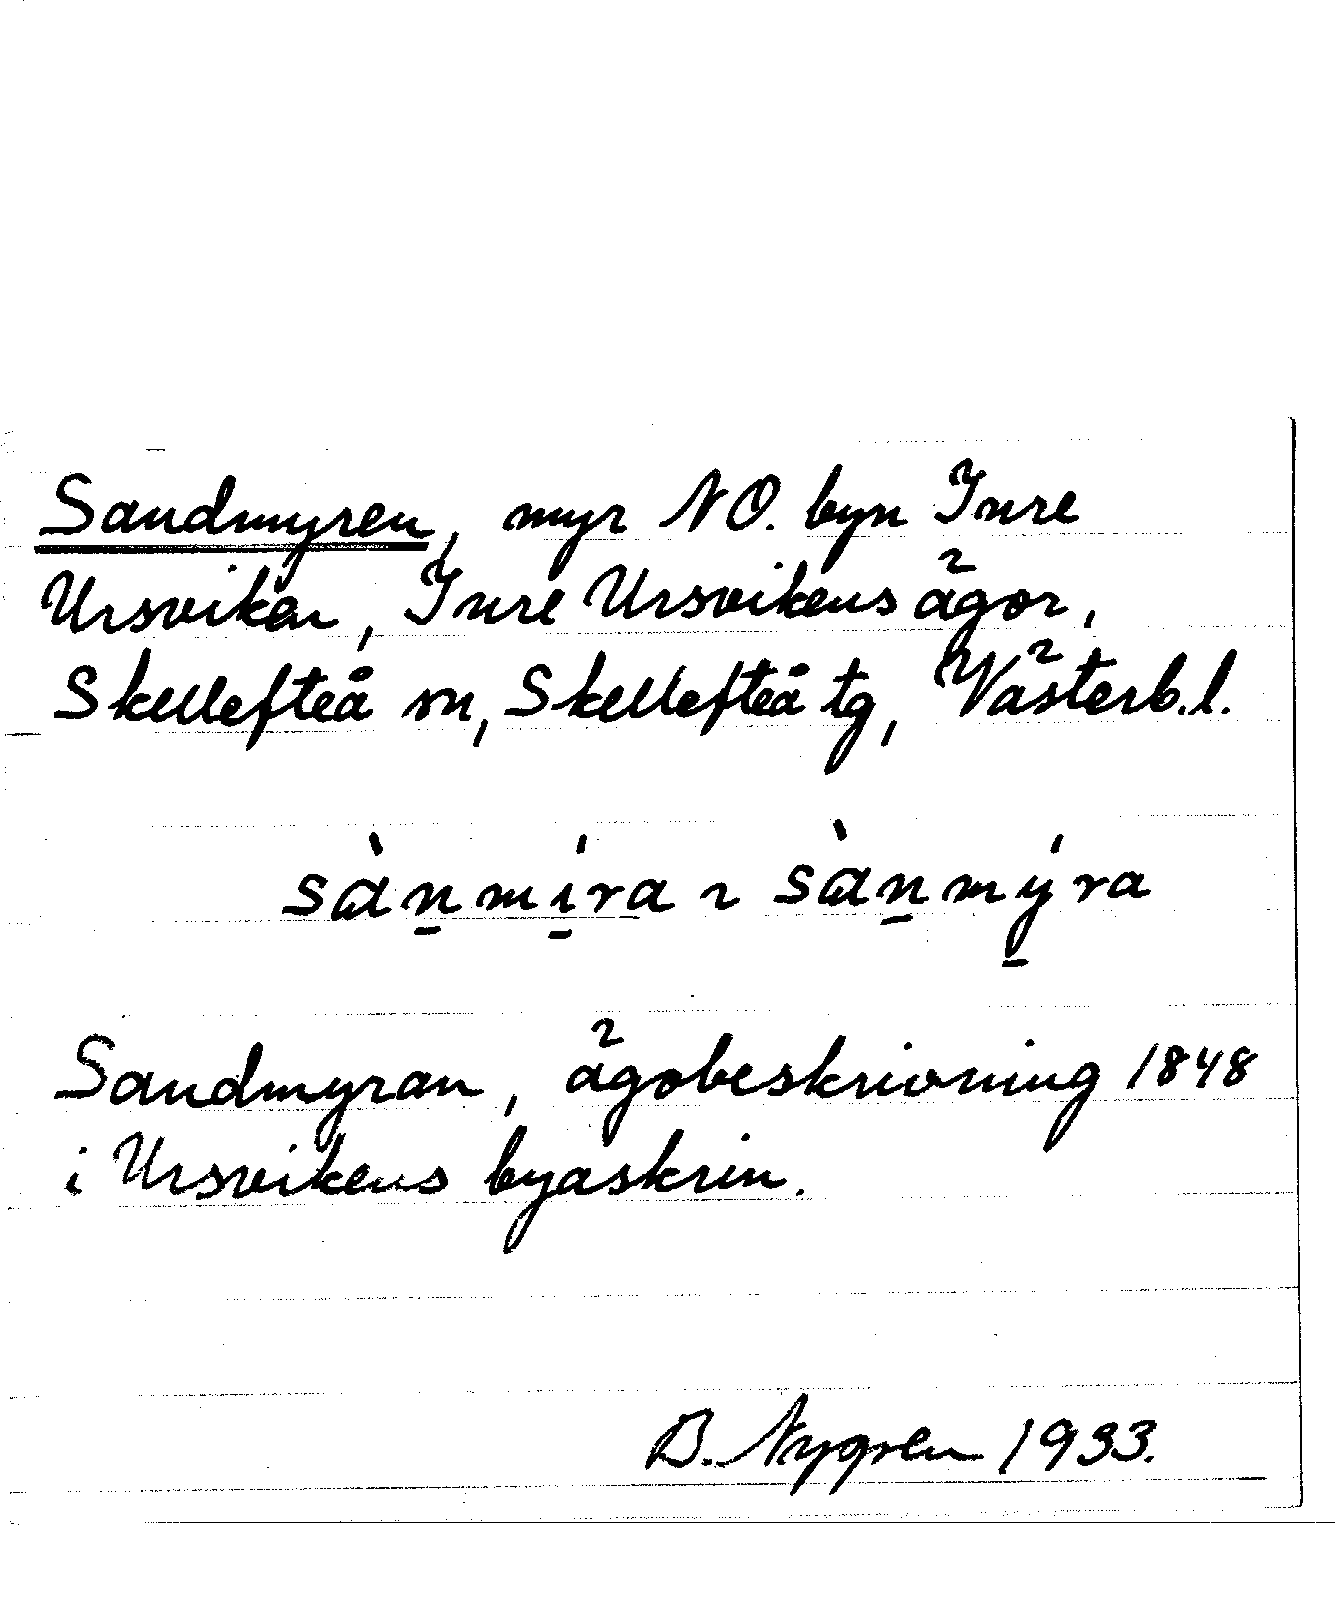 Sandmyren, myr NO. byn Inre
Ursviken, Inre Ursvikens ägor,
Skellefteå sn, Skellefteå tg, Västerb.l.
sàn̠mí̠ra ~ sàn̠mý̠ra
Sandmyran, ägobeskrivning 1848
i Ursvikens byaskrin.
B. Nygren 1933.